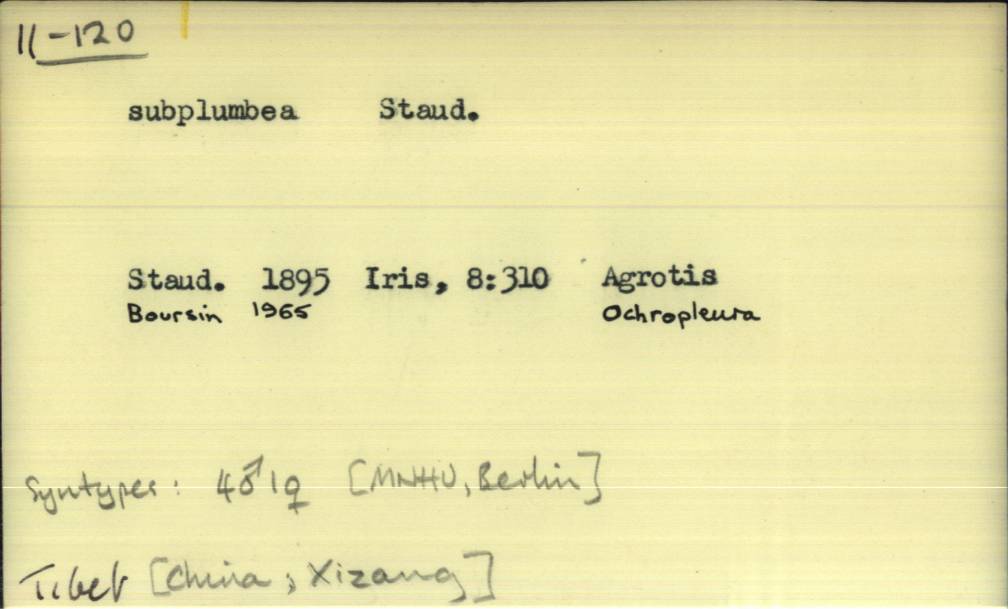 11-120
subplumbea Staud.
Staud. 1895 Iris, 8:310 Agrotis
Boursin 1965 Ochropleura
Syntypes: 4♂ 1♀ [MNHU, Berlin]
Tibet [China; Xizang]